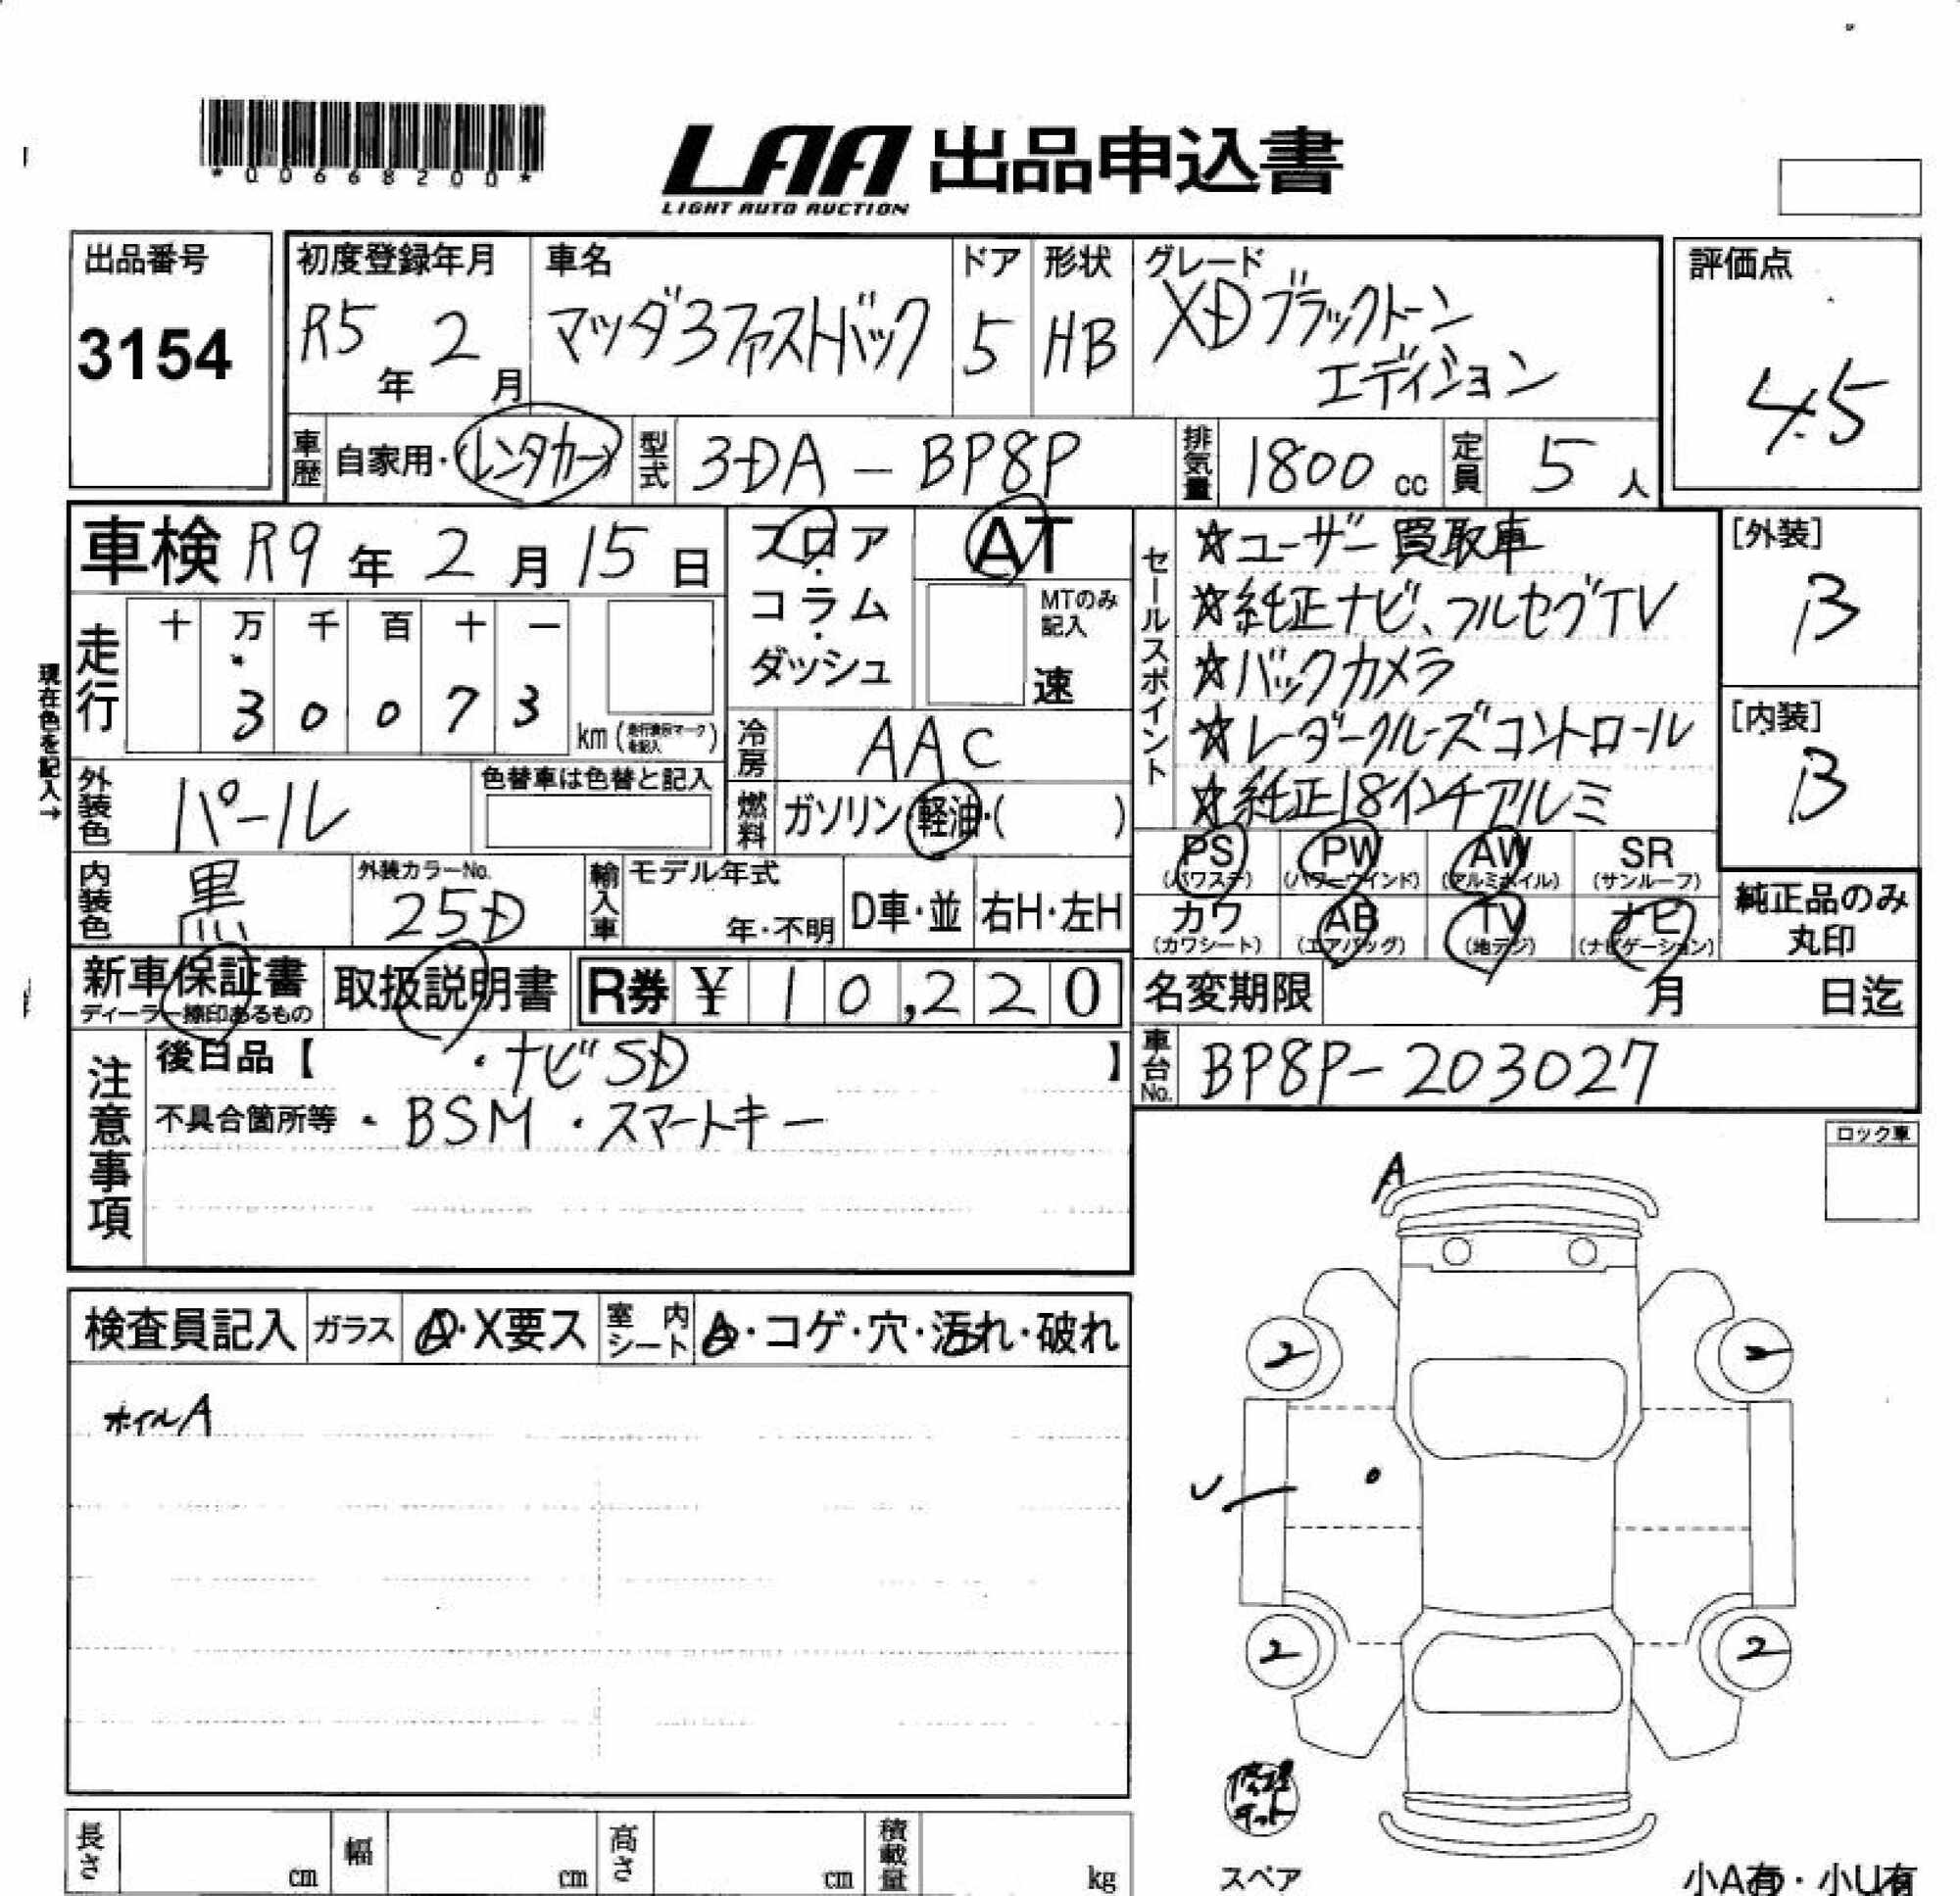 *00668200*
LAA 出品申込書
LIGHT AUTO AUCTION
出品番号
3154
初度登録年月
R5年 2月
車名
マツダ3ファストバック
ドア
5
形状
HB
グレード
XDブラックトーン
エディション
評価点
4.5
車歴 自家用・(レンタカー)
型式 3DA - BP8P
排気量 1800 cc
定員 5 人
車検 R9年 2月 15日
フロア・コラム・ダッシュ
AT
MTのみ記入
速
セールスポイント
☆ユーザー買取車
☆純正ナビ、フルセグTV
☆バックカメラ
☆レーダークルーズコントロール
☆純正18インチアルミ
[外装]
B
[内装]
B
現在色を記入→
走行
十 万 千 百 十 一
3 0 0 7 3
km (走行表示マークを記入)
冷房 AAC
外装色 パール
色替車は色替と記入
燃料 ガソリン・軽油・( )
PS (パワステ)
PW (パワーウインド)
AW (アルミホイル)
SR (サンルーフ)
カワ (カワシート)
AB (エアバッグ)
TV (地デジ)
ナビ (ナビゲーション)
純正品のみ
丸印
内装色 黒
外装カラーNo.
25D
輸入車 モデル年式
年・不明
D車・並
右H・左H
新車保証書
ディーラー捺印あるもの
取扱説明書
R券 ¥ 10,220
名変期限 月 日迄
車台No. BP8P-203027
注意事項
後日品【 ・ナビSD 】
不具合箇所等 ・BSM ・スマートキー
ロック車
A
検査員記入
ガラス A・X要ス
室内シート A・コゲ・穴・汚れ・破れ
ホイルA
2 2
U
2 2
修理キット
スペア
長さ cm
幅 cm
高さ cm
積載量 kg
小A有・小U有